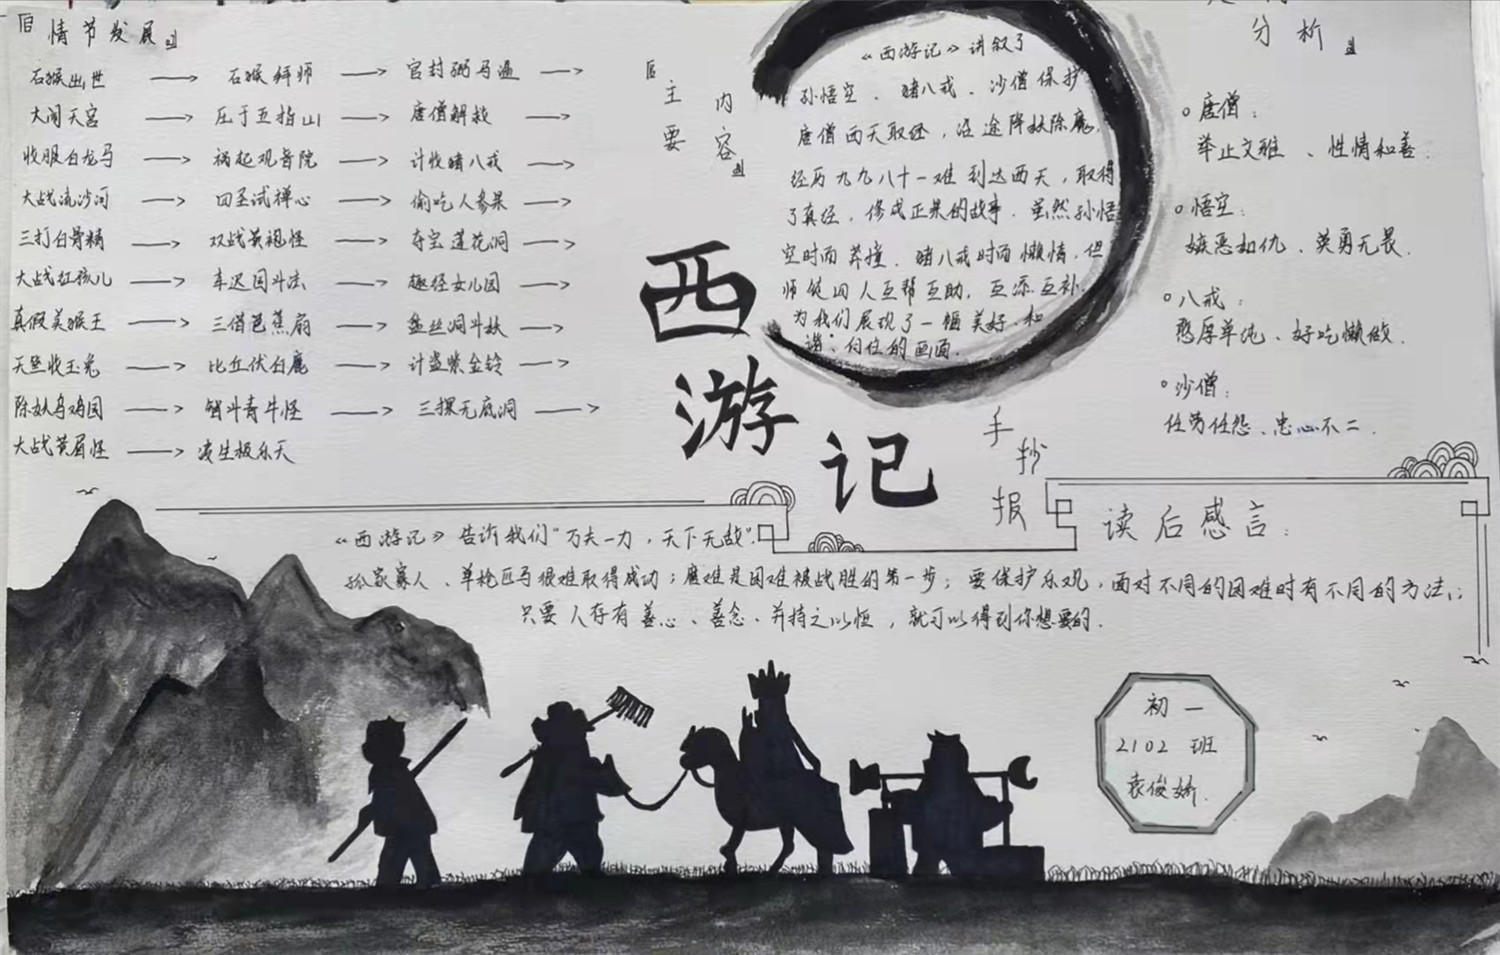 『情节发展』
石猴出世 → 石猴拜师 → 官封弼马温 →
大闹天宫 → 压于五指山 → 唐僧解救 →
收服白龙马 → 祸起观音院 → 计收猪八戒 →
大战流沙河 → 四圣试禅心 → 偷吃人参果 →
三打白骨精 → 双战黄袍怪 → 夺宝莲花洞 →
大战红孩儿 → 车迟国斗法 → 趣经女儿国 →
真假美猴王 → 三借芭蕉扇 → 盘丝洞斗妖 →
天竺收玉兔 → 比丘伏白鹿 → 计盗紫金铃 →
除妖乌鸡国 → 智斗青牛怪 → 三探无底洞 →
大战黄眉怪 → 凌生极乐天
『主要
内容』
《西游记》讲叙了
孙悟空、猪八戒、沙僧保护
唐僧西天取经，沿途降妖除魔，
经历九九八十一难到达西天，取得
了真经，修成正果的故事．虽然孙悟
空时而莽撞．猪八戒时而懒惰，但
师徒四人互帮互助，互添互补．
为我们展现了一幅美好．和
谐．的画面．
西游记
手抄报
分析』
唐僧：
举止文雅、性情和善．
悟空：
嫉恶如仇、英勇无畏．
八戒：
憨厚单纯、好吃懒做．
沙僧：
任劳任怨、忠心不二．
读后感言：
《西游记》告诉我们“万夫一力，天下无敌”．
孤家寡人、单枪匹马很难取得成功；磨难是困难被战胜的第一步；要保护乐观，面对不同的困难时有不同的方法；
只要人存有善心、善念、并持之以恒，就可以得到你想要的．
初一
2102班
袁俊娇．